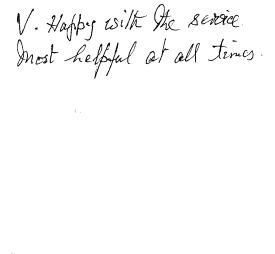 V. Happy with the service.
Most helpful at all times.